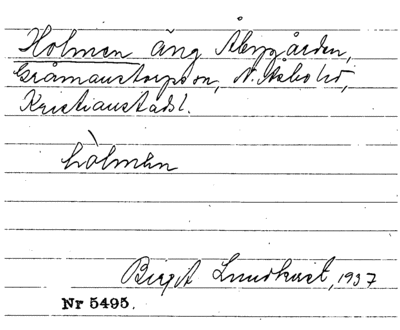 Holmen äng Åbergården,
Gråmanstorps sn, N. Åsbo hd,
Kristianstads l.
hòlmən
Birgit Lundkvist, 1937
Nr 5495.